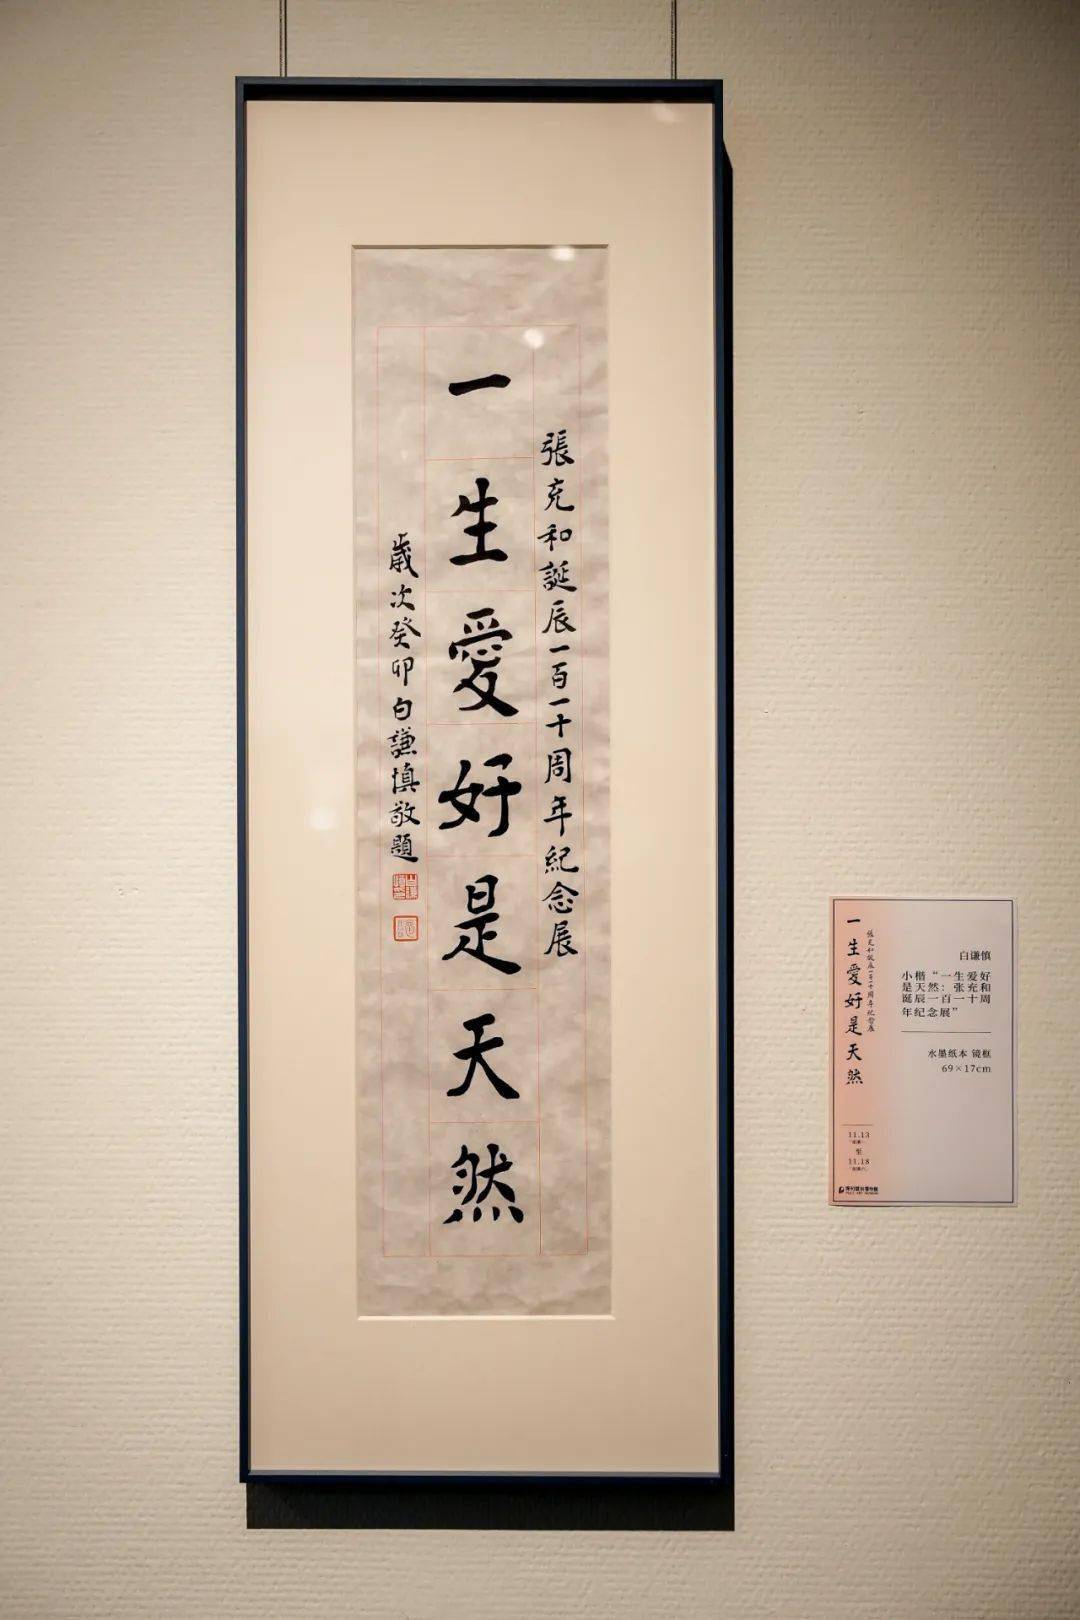 張充和誕辰一百一十周年紀念展
一生愛好是天然
歲次癸卯白謙慎敬題
一生愛好是天然
張充和誕辰一百一十周年紀念展
11.13
至
11.18
白谦慎
小楷“一生爱好
是天然：张充和
诞辰一百一十周
年纪念展”
水墨纸本 镜框
69×17cm